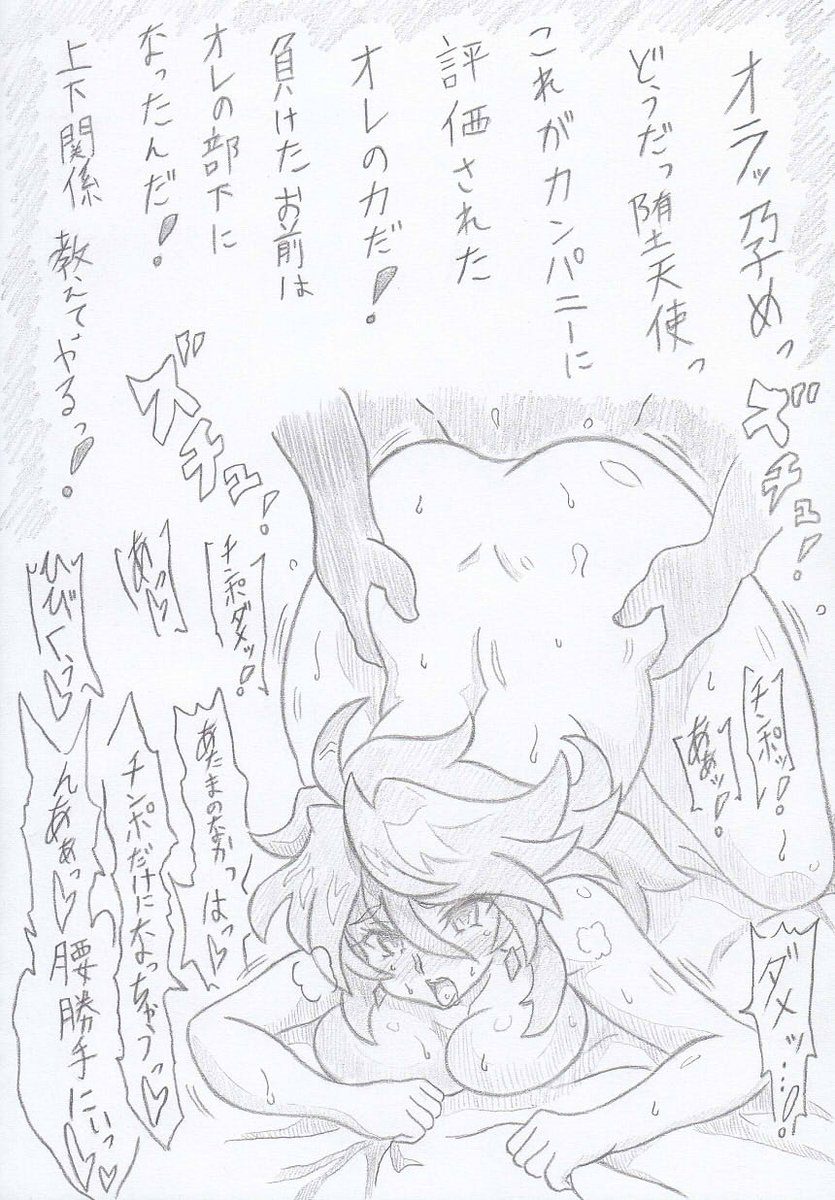 オラッ
どうだっ堕天使っ
これがカンパニーに
評価された
オレの力だ!
負けたお前は
オレの部下に
なったんだ!
上下関係 教えてやるっ!
ズチュ!
ズチュ!
チンポッ!
ああッ!
ダメッ…!
チンポダメッ!
あっ
ひびくぅ♡
あたまの なかっ はっ♡
チンポだけになっちゃうっ♡
んああっ♡ 腰勝手にいっ♡